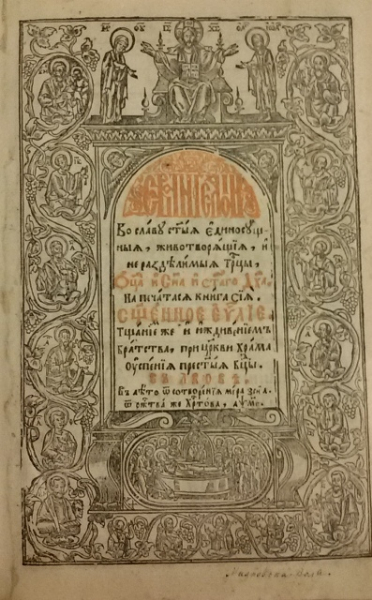 Во славу ст҃ыѧ єдиносущ
ныѧ, животворѧщїѧ, и
нераздѣлимыѧ Тр҃цы,
Ѻц҃а и Сн҃а и ст҃аго Дх҃а,
На печатасѧ книга сїѧ.
СЩ҃ЕННОЕ ЕѴ҃ЛІЕ.
Тщанїе же и иждивенїемъ
Братства, при цр҃кви храма
Оуспенїѧ прест҃ыѧ Бц҃ы.
ВЪ ЛВОВѢ.
Въ лѣто ѿ сотворенїѧ мира
ѿ ржⷭ҇тва же Хр҃това,